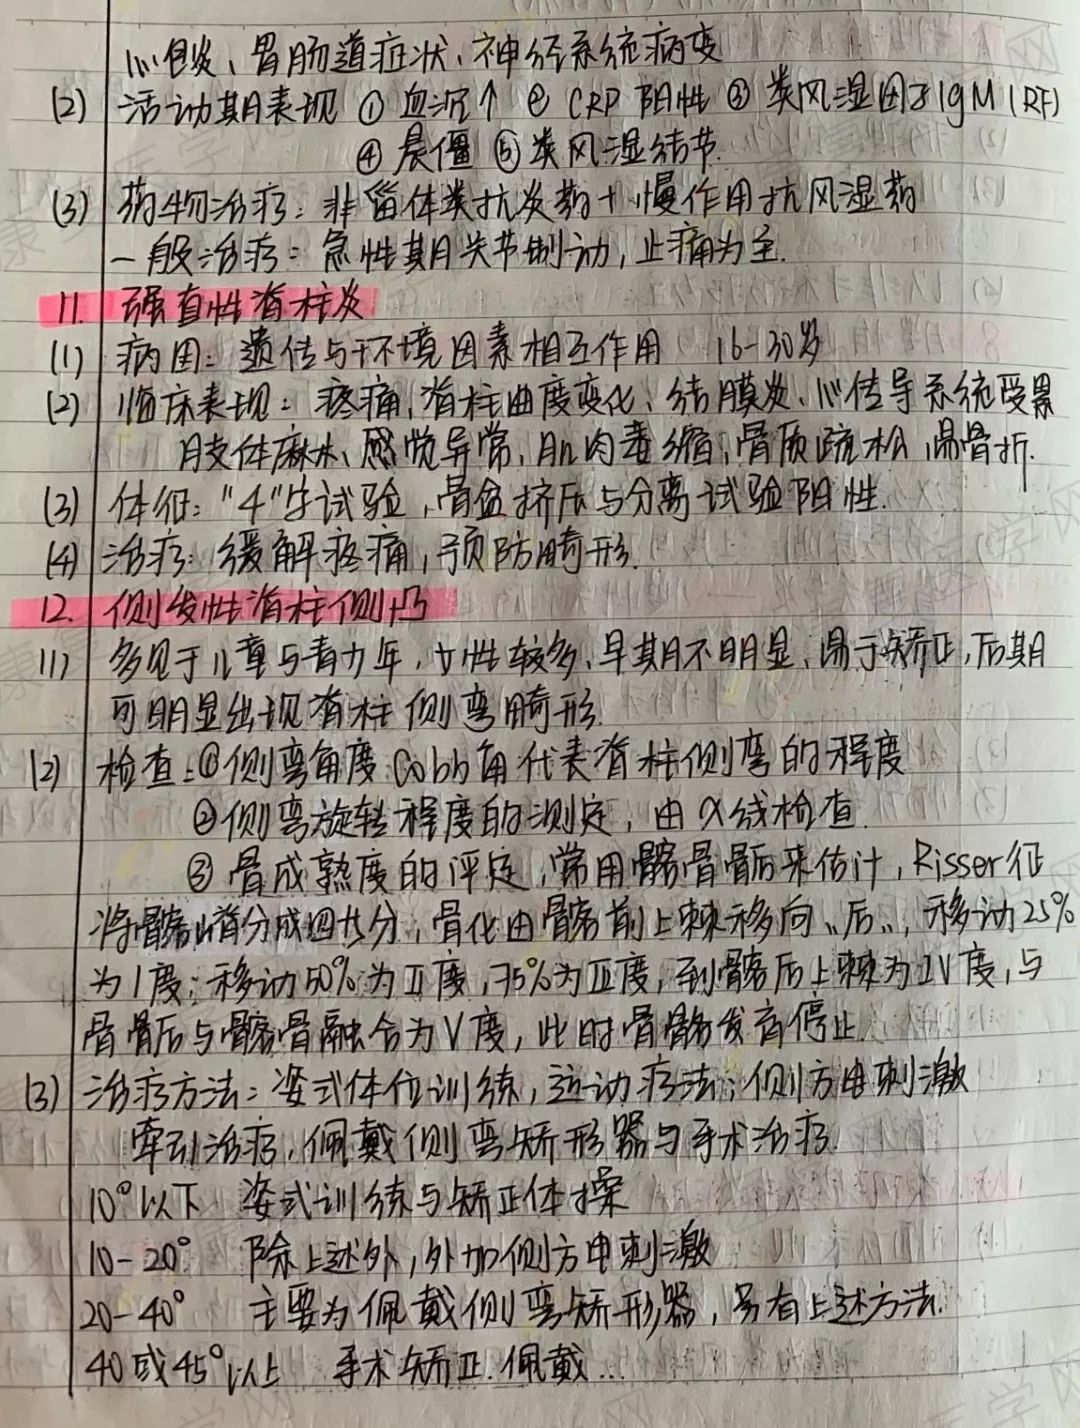 心包炎、胃肠道症状、神经系统病变
(2) 活动期表现 ①血沉↑ ②CRP阳性 ③类风湿因子IgM(RF)
④晨僵 ⑤类风湿结节.
(3) 药物治疗：非甾体类抗炎药+慢作用抗风湿药
一般治疗：急性期关节制动，止痛为主.
11. 强直性脊柱炎
(1) 病因：遗传与环境因素相互作用 16-30岁
(2) 临床表现：疼痛，脊柱曲度变化、结膜炎、心传导系统受累
肢体麻木、感觉异常，肌肉萎缩，骨质疏松，易骨折.
(3) 体征："4"字试验，骨盆挤压与分离试验阳性.
(4) 治疗：缓解疼痛，预防畸形.
12. 侧发性脊柱侧凸
(1) 多见于儿童与青少年，女性较多、早期不明显、易于矫正，后期
可明显出现脊柱侧弯畸形.
(2) 检查：①侧弯角度 Cobb角代表脊柱侧弯的程度
②侧弯旋转程度的测定，由X线检查.
③骨成熟度的评定，常用髂骨骨骺来估计，Risser征
将髂嵴分成四部分，骨化由髂前上棘移向"后"，移动25%
为I度；移动50%为II度，75%为III度，到髂后上棘为IV度，与
骨骺后与髂骨融合为V度，此时骨骼发育停止.
(3) 治疗方法：姿式体位训练，运动疗法；侧方电刺激
牵引治疗，佩戴侧弯矫形器与手术治疗.
10°以下 姿式训练与矫正体操
10-20° 除上述外，外加侧方电刺激
20-40° 主要为佩戴侧弯矫形器，另有上述方法.
40或45°以上 手术矫正.佩戴...